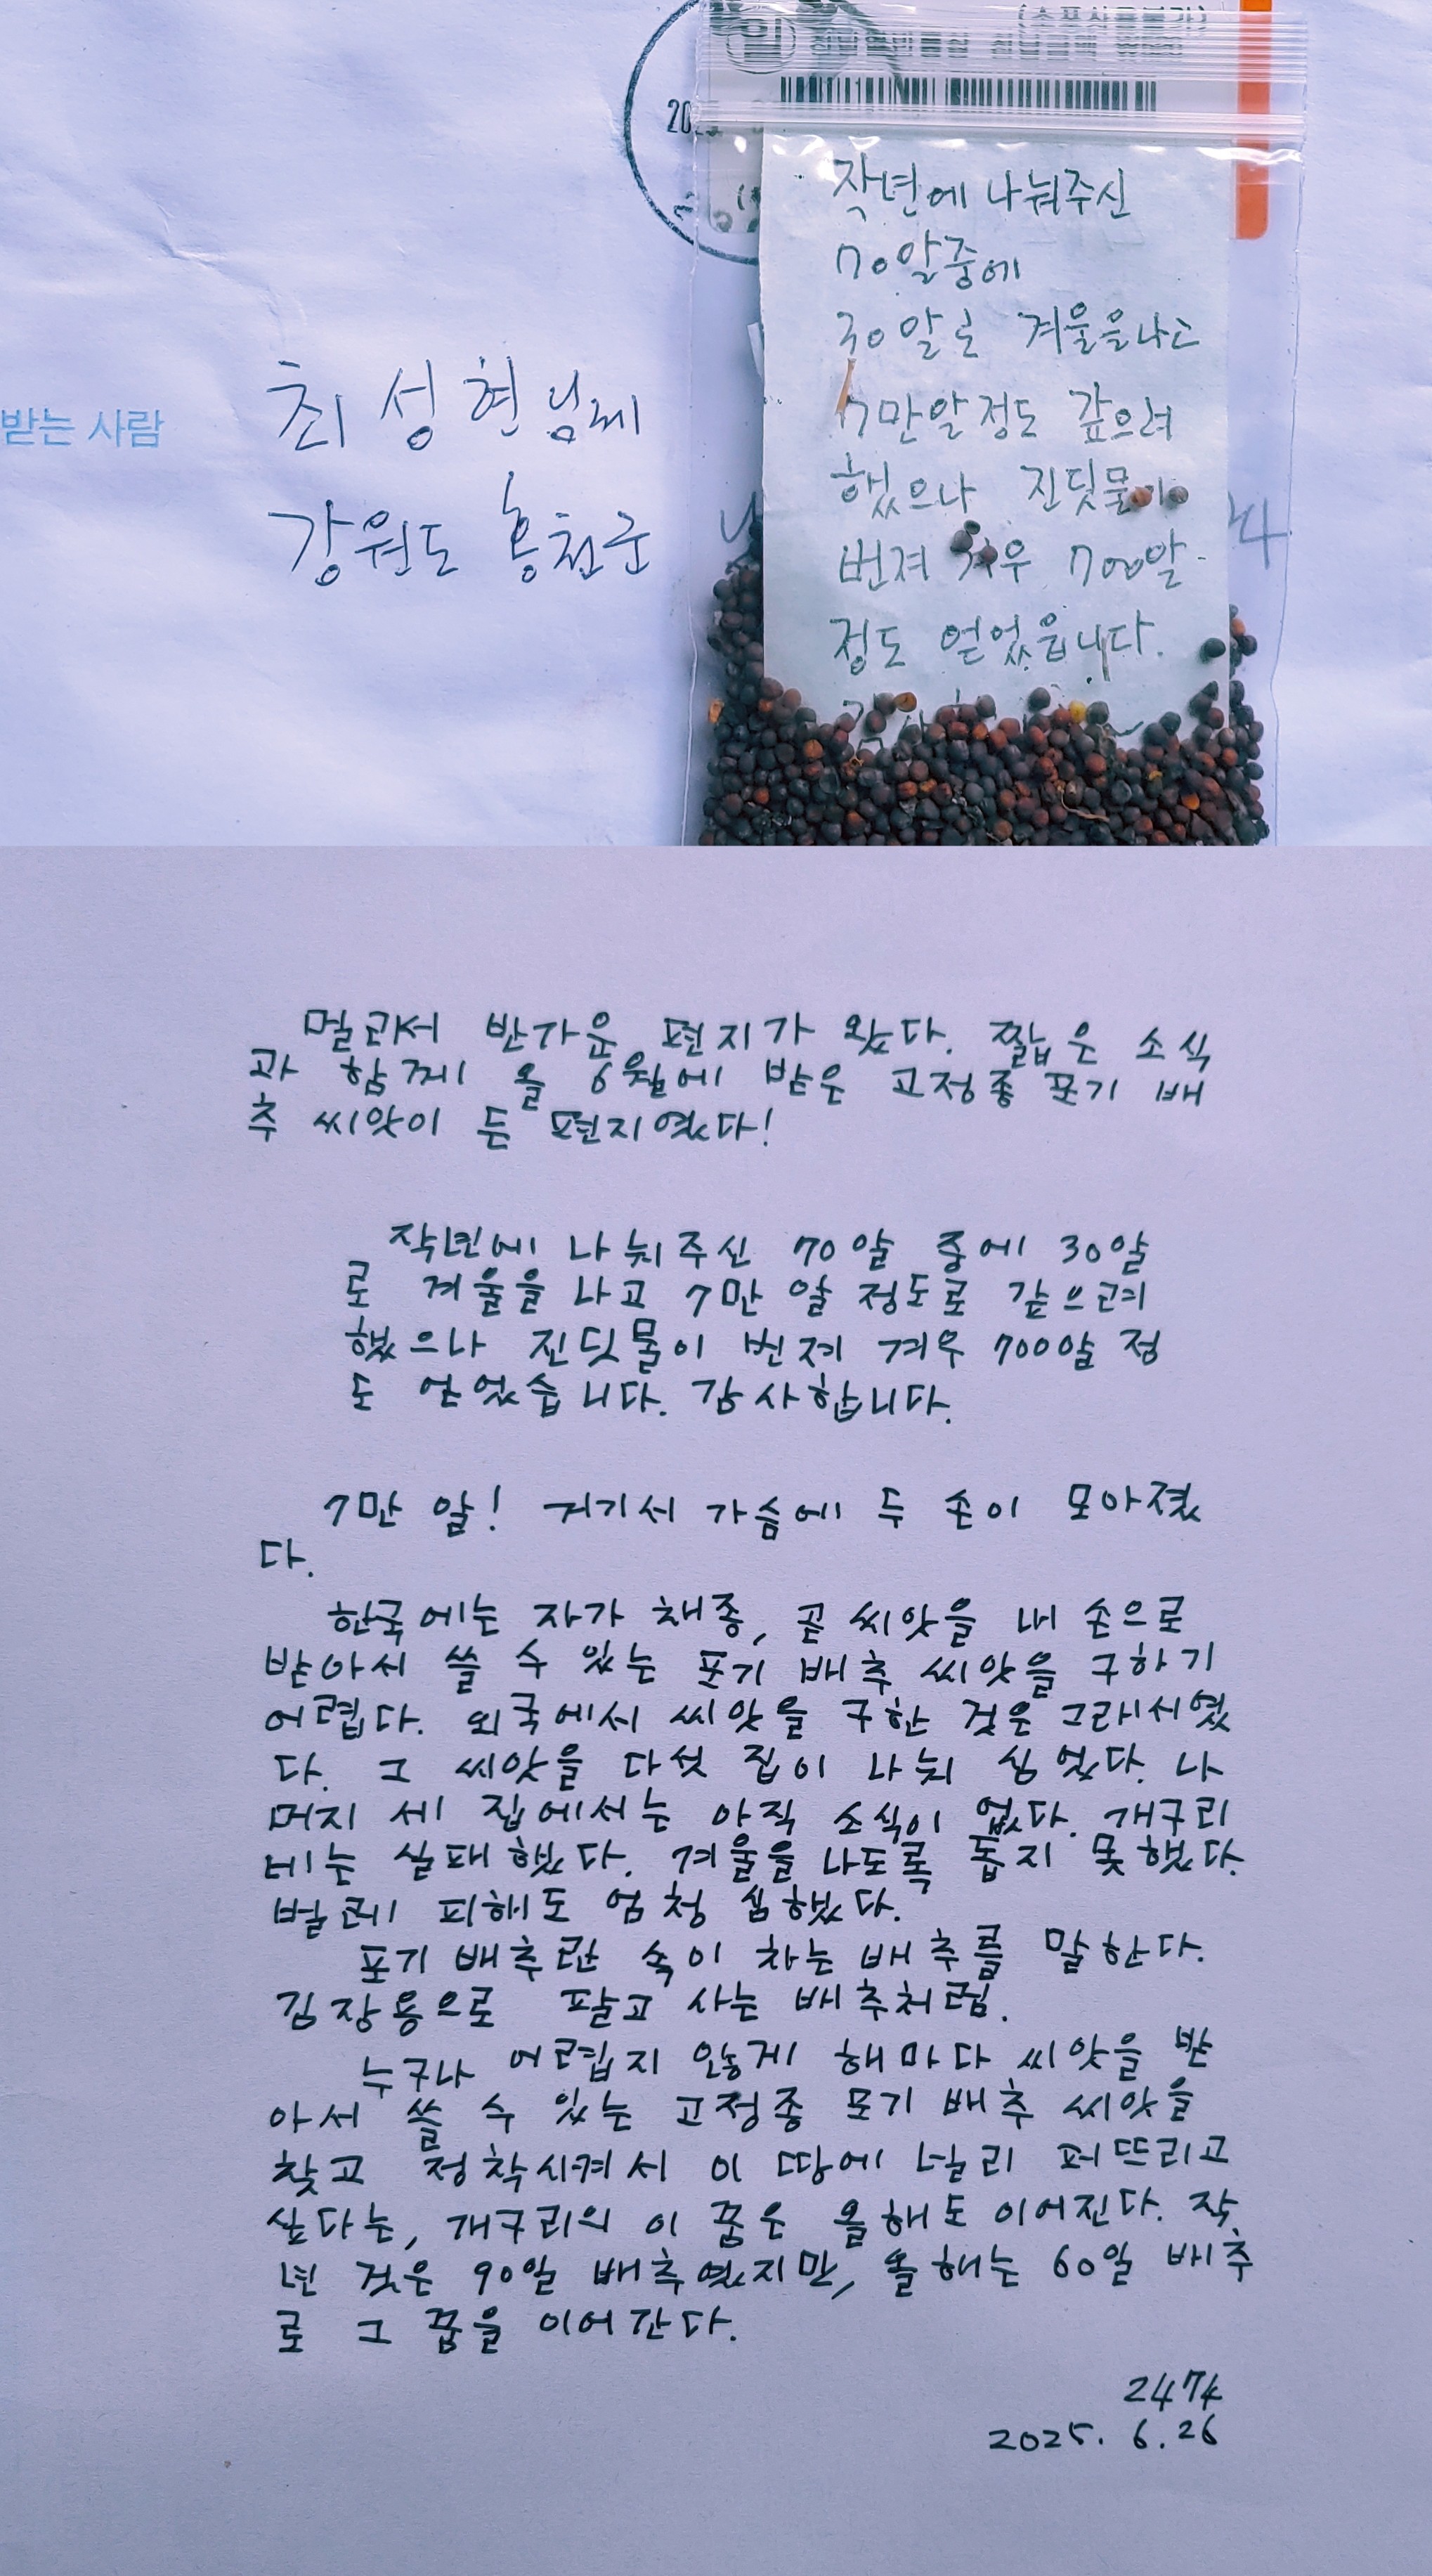 받는 사람
최성현님께
강원도 홍천군
작년에 나눠주신
70알중에
30알로 겨울을나고
7만알정도 갚으려
했으나 진딧물이
번져 겨우 700알
정도 얻었읍니다.
멀리서 반가운 편지가 왔다. 짧은 소식
과 함께 올 6월에 받은 고정종 포기 배
추 씨앗이 든 편지였다!
작년에 나눠주신 70알 중에 30알
로 겨울을 나고 7만 알 정도로 갚으려
했으나 진딧물이 번져 겨우 700알 정
도 얻었습니다. 감사합니다.
7만 알! 거기서 가슴에 두 손이 모아졌
다.
한국에는 자가 채종, 곧 씨앗을 내 손으로
받아서 쓸 수 있는 포기 배추 씨앗을 구하기
어렵다. 외국에서 씨앗을 구한 것은 그래서였
다. 그 씨앗을 다섯 집이 나눠 심었다. 나
머지 세 집에서는 아직 소식이 없다. 개구리
네는 실패했다. 겨울을 나도록 돕지 못했다.
벌레 피해도 엄청 심했다.
포기 배추란 속이 차는 배추를 말한다.
김장용으로 팔고 사는 배추처럼.
누구나 어렵지 않게 해마다 씨앗을 받
아서 쓸 수 있는 고정종 포기 배추 씨앗을
찾고 정착시켜서 이 땅에 널리 퍼뜨리고
싶다는, 개구리의 이 꿈은 올해도 이어진다. 작
년 것은 90일 배추였지만, 올해는 60일 배추
로 그 꿈을 이어간다.
2474
2025. 6.26